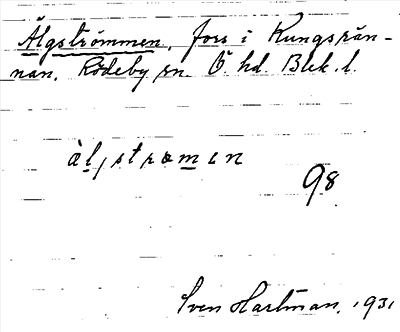 Älgströmmen, fors i Kungsrän-
nan. Rödeby sn. Ö. hd. Blek. l.
98
Sven Hartman, 1931